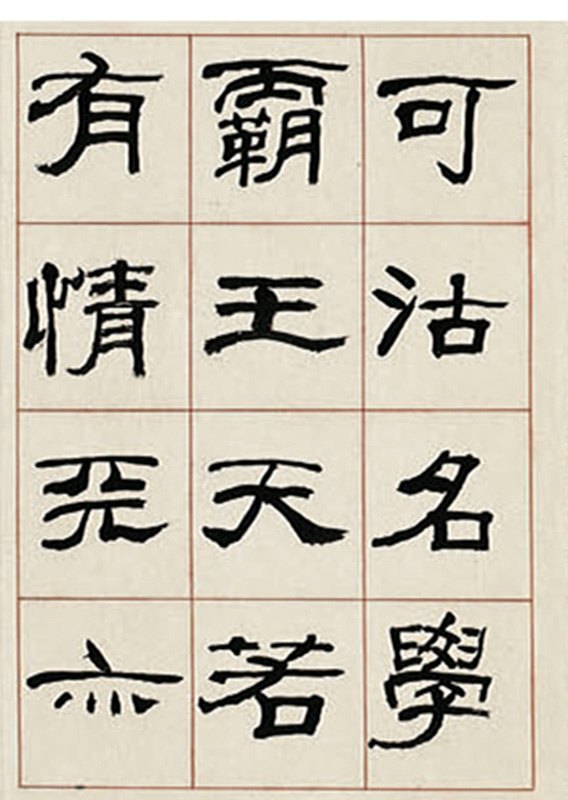 可沽名學
霸王天若
有情天亦